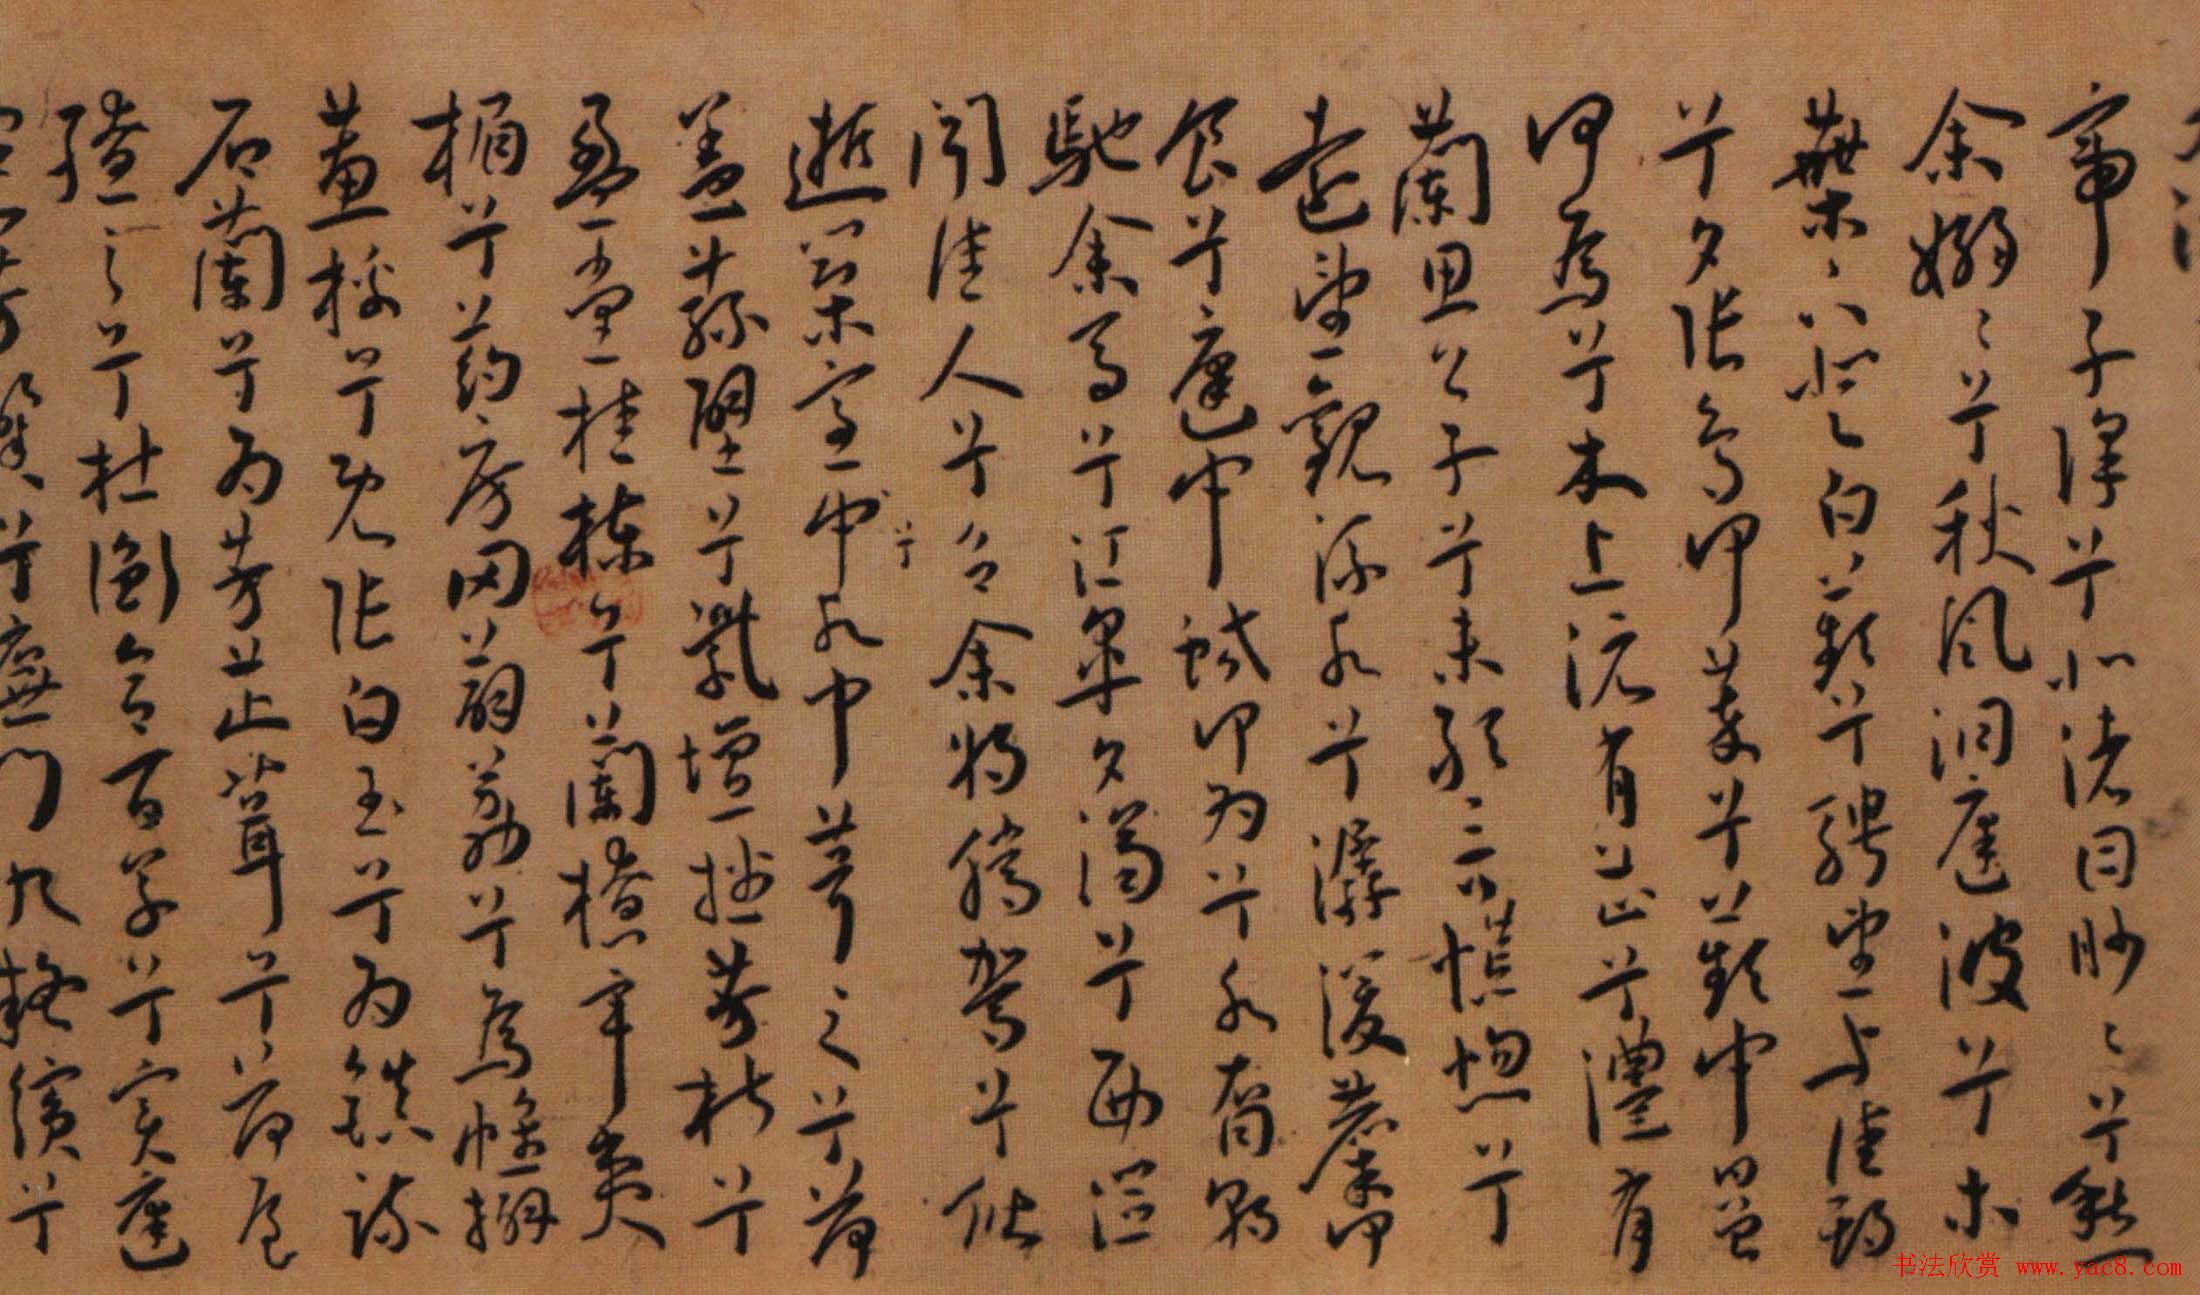 帝子降兮北渚目眇〻兮愁
余嫋〻兮秋風洞庭波兮木
葉下白薠兮騁望與佳期
兮夕張鳥何萃兮蘋中罾
何為兮木上沅有芷兮澧有
蘭思公子兮未敢言慌惚兮
遠望觀流水兮潺湲麋何
食兮庭中蛟何為兮水裔朝
馳余馬兮江皋夕濟兮西澨
聞佳人兮召余將騰駕兮偕
逝築室中兮水中葺之兮荷
蓋蓀壁兮紫壇播芳椒兮
盈堂桂棟兮蘭橑辛夷
楣兮药房罔薜荔兮為帷擗
蕙櫋兮既張白玉兮為鎮疏
石蘭兮為芳芷葺兮荷屋
繚之兮杜衡合百草兮實庭
建芳馨兮廡門九嶷繽兮
书法欣赏 www.yac8.com